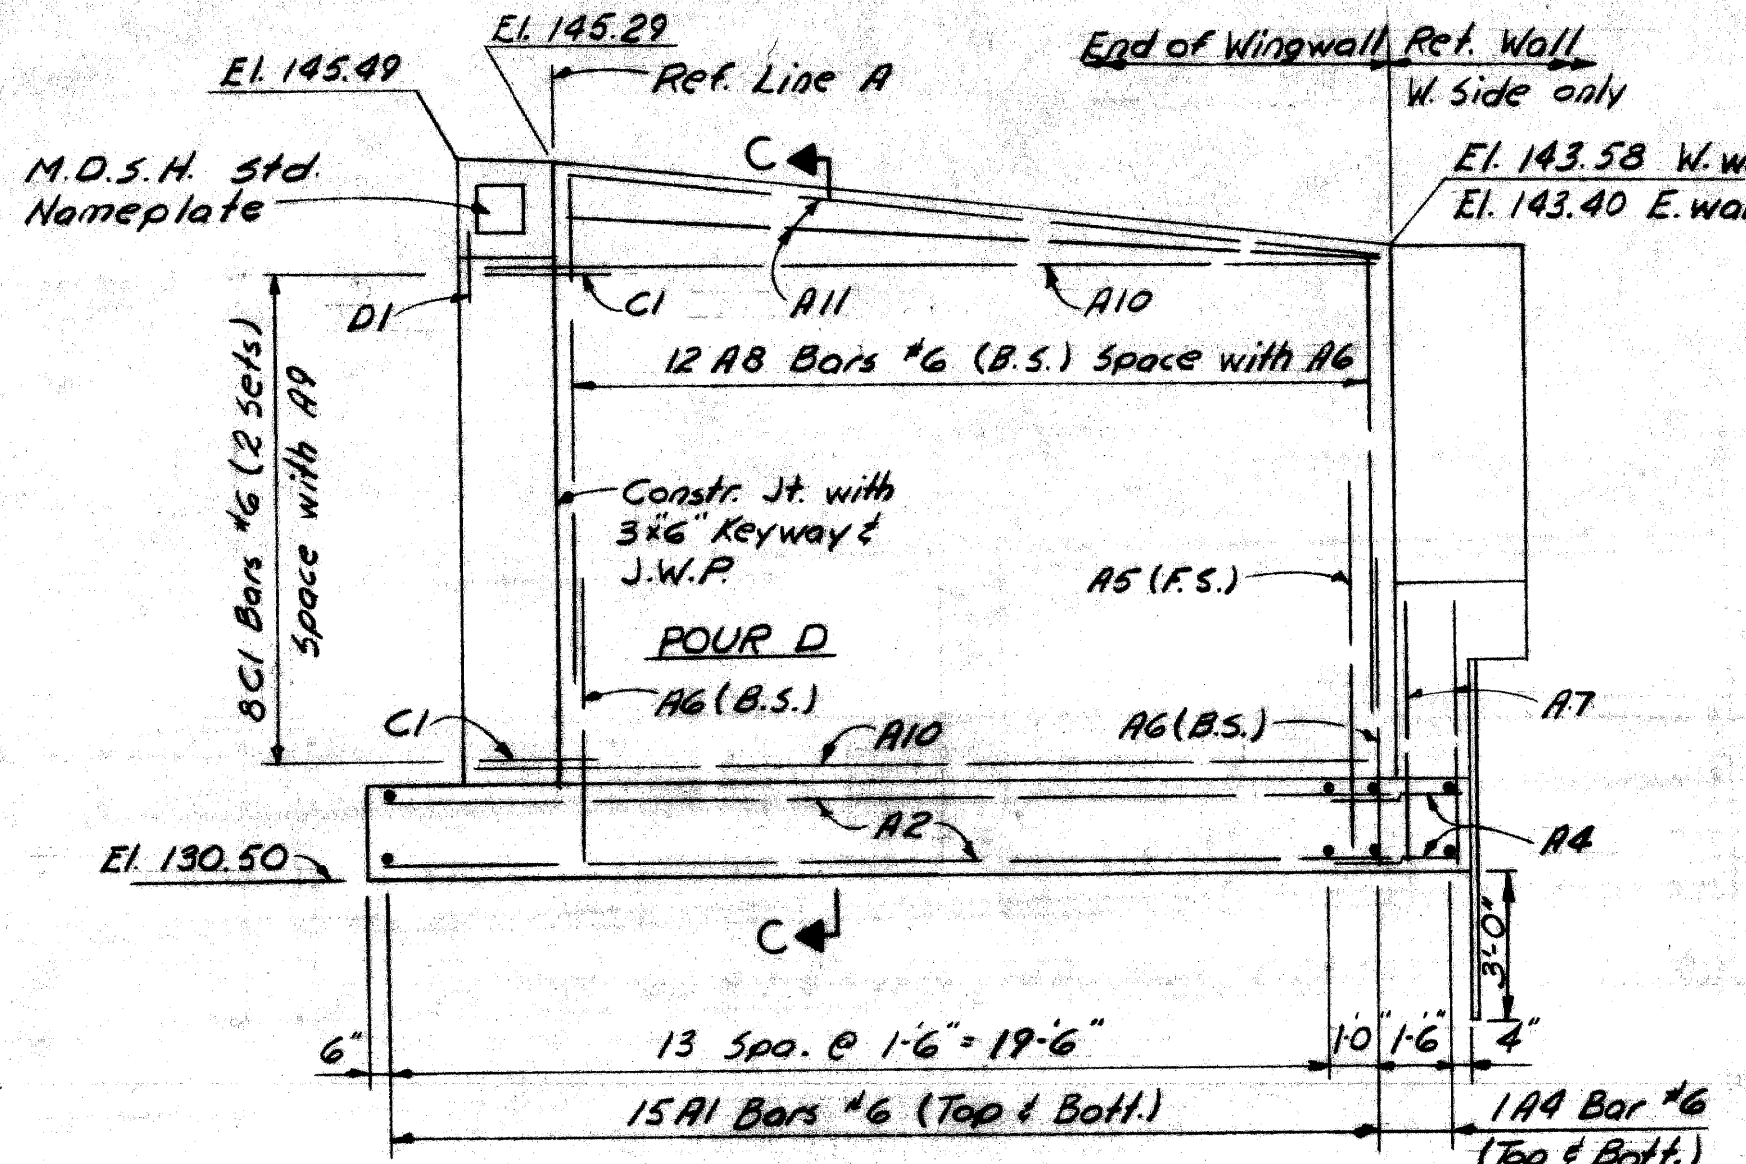 El. 145.29
El. 145.49
Ref. Line A
End of Wingwall
Ret. Wall
W. Side only
M.D.S.H. Std.
Nameplate
C
El. 143.58 W.
El. 143.40 E.
D1
C1
A11
A10
12 A8 Bars #6 (B.S.) Space with A6
8 C1 Bars #6 (2 Sets)
Space with A9
Constr. Jt. with
3"x6" Keyway &
J.W.P.
A5 (F.S.)
POUR D
A6 (B.S.)
A7
C1
A10
A6 (B.S.)
A2
A4
El. 130.50
C
3'-0"
6"
13 Spa. @ 1'-6" = 19'-6"
1'-0"
1'-6"
4"
15 A1 Bars #6 (Top & Bott.)
1 A4 Bar #6
(Top & Bott.)